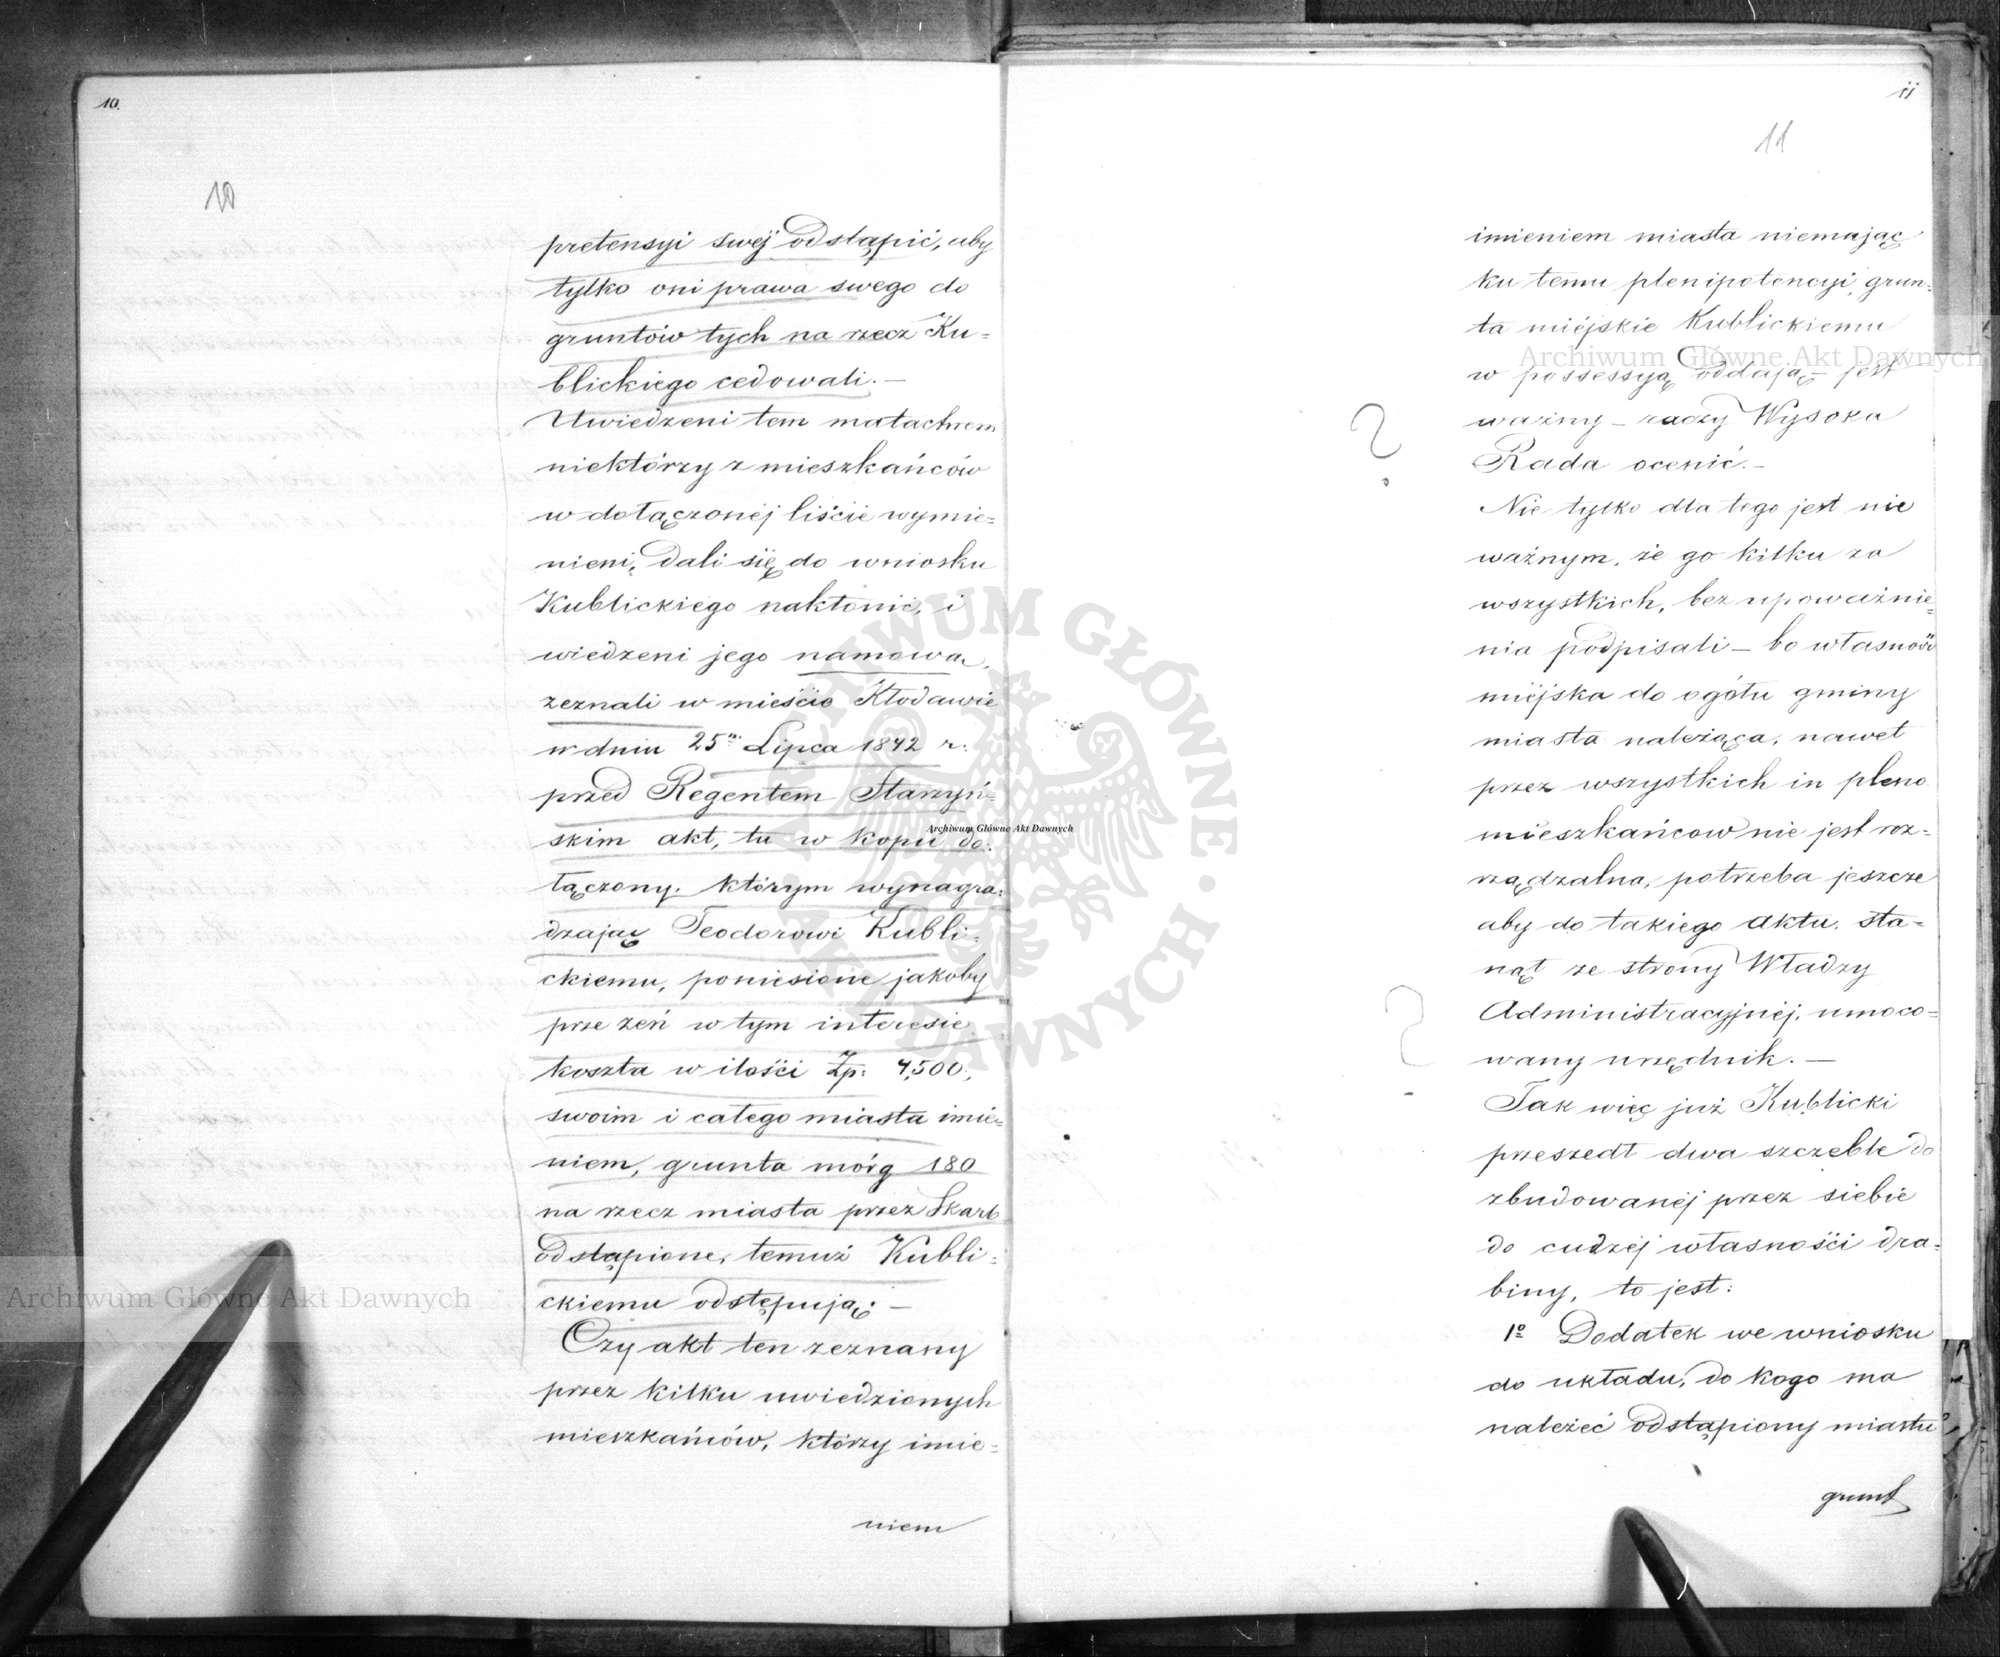 10.
10
pretensyi swéj odstąpić, aby
tylko oni prawa swego do
gruntów tych na rzecz Ku=
blickiego cedowali. —
Uwiedzeni tem matactwem
niektórzy z mieszkańców
w dołączonéj liście wymie=
nieni, dali się do wniosku
Kublickiego nakłonić, i
wiedzeni jego namową,
zeznali w mieście Kłodawie
w dniu 25 Lipca 1842 r.
przed Regentem Starzyń=
skim akt, tu w kopii do=
łączony. którym wynagra=
dzając Teodorowi Kubli=
ckiemu, poniesione jakoby
prze zeń w tym interesie
koszta w ilości Zp: 4,500,
swoim i całego miasta imie=
niem, grunta mórg 180
na rzecz miasta przez Skarb
odstąpione, temuż Kubli=
ckiemu odstępują. —
Czy akt ten zeznany
przez kilku uwiedzionych
mieszkańców, którzy imie=
niem
11
11
imieniem miasta niemając
ku temu plenipotencyi, grun=
ta miéjskie Kublickiemu
w possessyą oddają — jest
ważny — raczy Wysoka
Rada ocenić. —
Nie tylko dla tego jest nie
ważnym, że go kilku za
wszystkich, bez upoważnie=
nia podpisali — bo własność
miéjska do ogółu gminy
miasta należąca, nawet
przez wszystkich in pleno
mieszkańcow nie jest roz=
rządzalna, potrzeba jeszcze
aby do takiego aktu, sta=
nął ze strony Władzy
Administracyjnéj, umoco=
wany urzędnik. —
Tak więc już Kublicki
przeszedł dwa szczeble do
zbudowanéj przez siebie
do cudzéj własności dra=
biny, to jest:
1º Dodatek we wniosku
do układu, do kogo ma
należeć odstąpiony miastu
grunt
?
?
Archiwum Główne Akt Dawnych
Archiwum Główne Akt Dawnych
Archiwum Główne Akt Dawnych
ARCHIWUM GŁÓWNE AKT DAWNYCH